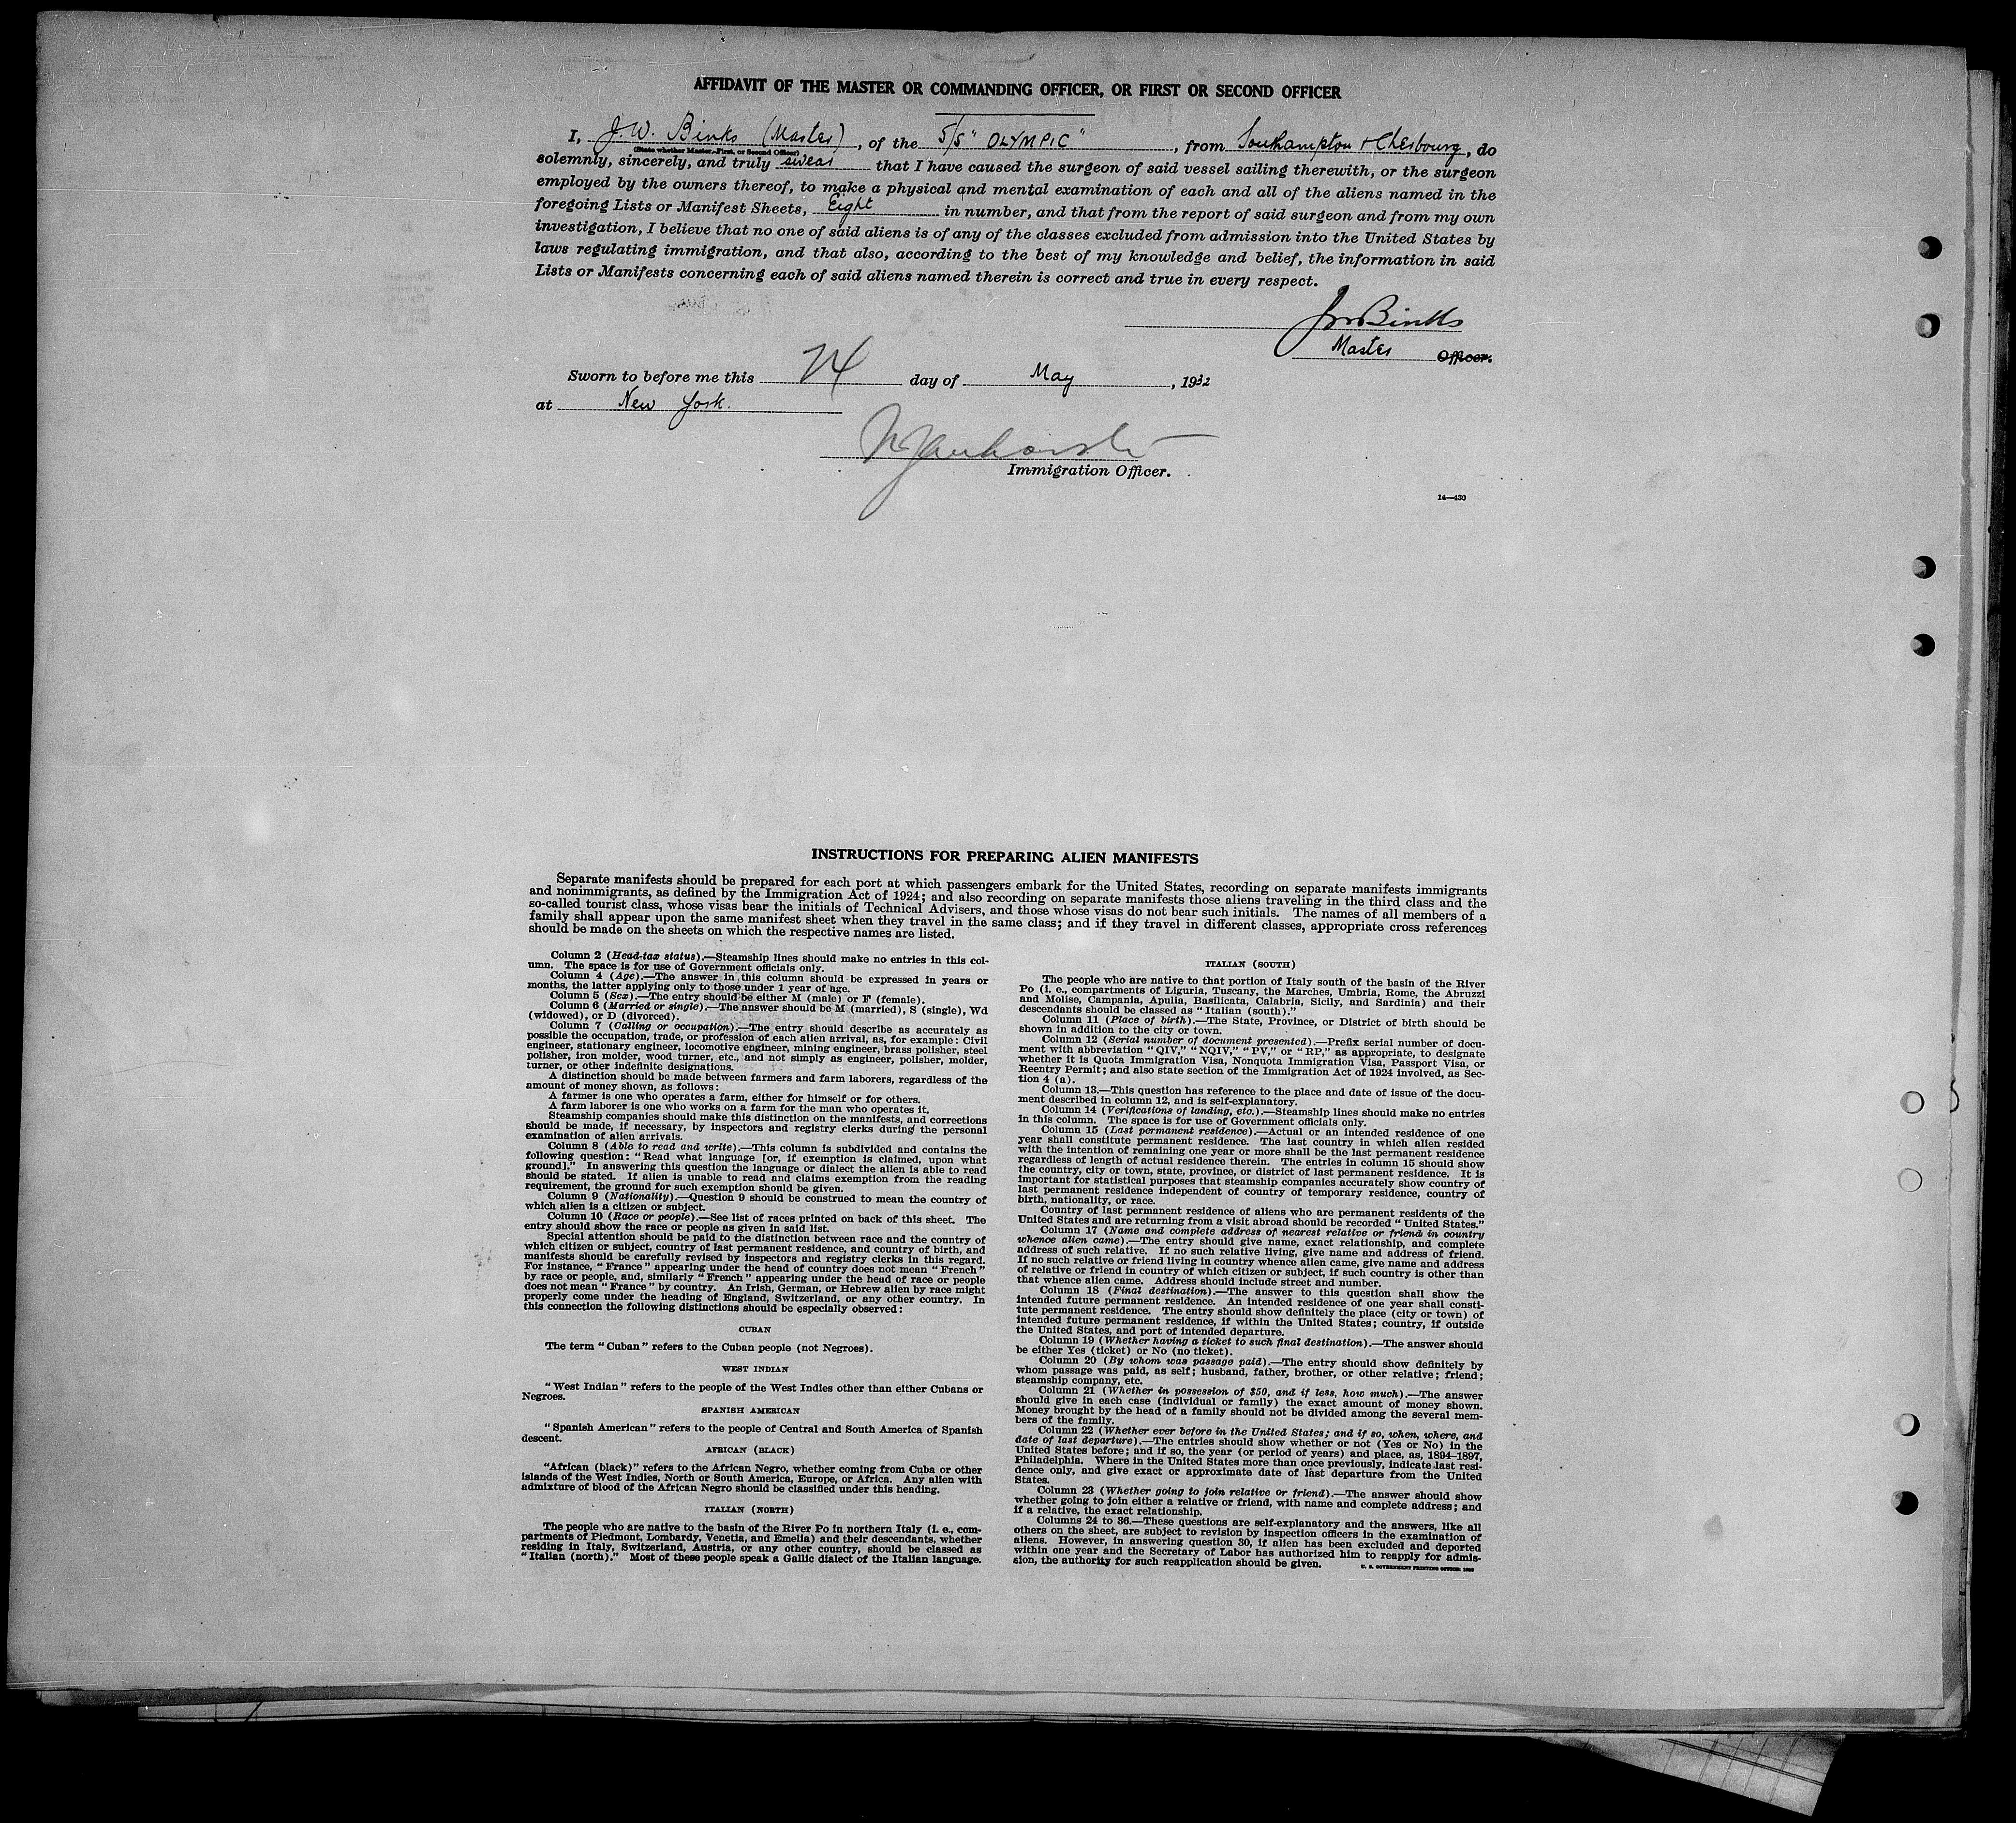 AFFIDAVIT OF THE MASTER OR COMMANDING OFFICER, OR FIRST OR SECOND OFFICER
I, J.W. Binks (Master), of the S/S "OLYMPIC", from Southampton + Cherbourg, do
(State whether Master, First, or Second Officer)
solemnly, sincerely, and truly swear that I have caused the surgeon of said vessel sailing therewith, or the surgeon
employed by the owners thereof, to make a physical and mental examination of each and all of the aliens named in the
foregoing Lists or Manifest Sheets, Eight in number, and that from the report of said surgeon and from my own
investigation, I believe that no one of said aliens is of any of the classes excluded from admission into the United States by
laws regulating immigration, and that also, according to the best of my knowledge and belief, the information in said
Lists or Manifests concerning each of said aliens named therein is correct and true in every respect.
JW Binks
Master Officer.
Sworn to before me this day of May, 1932
at New York.
Immigration Officer.
14—430
INSTRUCTIONS FOR PREPARING ALIEN MANIFESTS
Separate manifests should be prepared for each port at which passengers embark for the United States, recording on separate manifests immigrants
and nonimmigrants, as defined by the Immigration Act of 1924; and also recording on separate manifests those aliens traveling in the third class and the
so-called tourist class, whose visas bear the initials of Technical Advisers, and those whose visas do not bear such initials. The names of all members of a
family shall appear upon the same manifest sheet when they travel in the same class; and if they travel in different classes, appropriate cross references
should be made on the sheets on which the respective names are listed.
Column 2 (Head-tax status).—Steamship lines should make no entries in this col-
umn. The space is for use of Government officials only.
Column 4 (Age).—The answer in this column should be expressed in years or
months, the latter applying only to those under 1 year of age.
Column 5 (Sex).—The entry should be either M (male) or F (female).
Column 6 (Married or single).—The answer should be M (married), S (single), Wd
(widowed), or D (divorced).
Column 7 (Calling or occupation).—The entry should describe as accurately as
possible the occupation, trade, or profession of each alien arrival, as, for example: Civil
engineer, stationary engineer, locomotive engineer, mining engineer, brass polisher, steel
polisher, iron molder, wood turner, etc., and not simply as engineer, polisher, molder,
turner, or other indefinite designations.
A distinction should be made between farmers and farm laborers, regardless of the
amount of money shown, as follows:
A farmer is one who operates a farm, either for himself or for others.
A farm laborer is one who works on a farm for the man who operates it.
Steamship companies should make this distinction on the manifests, and corrections
should be made, if necessary, by inspectors and registry clerks during the personal
examination of alien arrivals.
Column 8 (Able to read and write).—This column is subdivided and contains the
following question: "Read what language [or, if exemption is claimed, upon what
ground]." In answering this question the language or dialect the alien is able to read
should be stated. If alien is unable to read and claims exemption from the reading
requirement, the ground for such exemption should be given.
Column 9 (Nationality).—Question 9 should be construed to mean the country of
which alien is a citizen or subject.
Column 10 (Race or people).—See list of races printed on back of this sheet. The
entry should show the race or people as given in said list.
Special attention should be paid to the distinction between race and the country of
which citizen or subject, country of last permanent residence, and country of birth, and
manifests should be carefully revised by inspectors and registry clerks in this regard.
For instance, "France" appearing under the head of country does not mean "French"
by race or people, and, similarly "French" appearing under the head of race or people
does not mean "France" by country. An Irish, German, or Hebrew alien by race might
properly come under the heading of England, Switzerland, or any other country. In
this connection the following distinctions should be especially observed:
CUBAN
The term "Cuban" refers to the Cuban people (not Negroes).
WEST INDIAN
"West Indian" refers to the people of the West Indies other than either Cubans or
Negroes.
SPANISH AMERICAN
"Spanish American" refers to the people of Central and South America of Spanish
descent.
AFRICAN (BLACK)
"African (black)" refers to the African Negro, whether coming from Cuba or other
islands of the West Indies, North or South America, Europe, or Africa. Any alien with
admixture of blood of the African Negro should be classified under this heading.
ITALIAN (NORTH)
The people who are native to the basin of the River Po in northern Italy (i. e., com-
partments of Piedmont, Lombardy, Venetia, and Emelia) and their descendants, whether
residing in Italy, Switzerland, Austria, or any other country, should be classed as
"Italian (north)." Most of these people speak a Gallic dialect of the Italian language.
ITALIAN (SOUTH)
The people who are native to that portion of Italy south of the basin of the River
Po (i. e., compartments of Liguria, Tuscany, the Marches, Umbria, Rome, the Abruzzi
and Molise, Campania, Apulia, Basilicata, Calabria, Sicily, and Sardinia) and their
descendants should be classed as "Italian (south)."
Column 11 (Place of birth).—The State, Province, or District of birth should be
shown in addition to the city or town.
Column 12 (Serial number of document presented).—Prefix serial number of docu-
ment with abbreviation "QIV," "NQIV," "PV," or "RP," as appropriate, to designate
whether it is Quota Immigration Visa, Nonquota Immigration Visa, Passport Visa, or
Reentry Permit; and also state section of the Immigration Act of 1924 involved, as Sec-
tion 4 (a).
Column 13.—This question has reference to the place and date of issue of the docu-
ment described in column 12, and is self-explanatory.
Column 14 (Verifications of landing, etc.).—Steamship lines should make no entries
in this column. The space is for use of Government officials only.
Column 15 (Last permanent residence).—Actual or an intended residence of one
year shall constitute permanent residence. The last country in which alien resided
with the intention of remaining one year or more shall be the last permanent residence
regardless of length of actual residence therein. The entries in column 15 should show
the country, city or town, state, province, or district of last permanent residence. It is
important for statistical purposes that steamship companies accurately show country of
last permanent residence independent of country of temporary residence, country of
birth, nationality, or race.
Country of last permanent residence of aliens who are permanent residents of the
United States and are returning from a visit abroad should be recorded "United States."
Column 17 (Name and complete address of nearest relative or friend in country
whence alien came).—The entry should give name, exact relationship, and complete
address of such relative. If no such relative living, give name and address of friend.
If no such relative or friend living in country whence alien came, give name and address
of relative or friend in country of which citizen or subject, if such country is other than
that whence alien came. Address should include street and number.
Column 18 (Final destination).—The answer to this question shall show the
intended future permanent residence. An intended residence of one year shall consti-
tute permanent residence. The entry should show definitely the place (city or town) of
intended future permanent residence, if within the United States; country, if outside
the United States, and port of intended departure.
Column 19 (Whether having a ticket to such final destination).—The answer should
be either Yes (ticket) or No (no ticket).
Column 20 (By whom was passage paid).—The entry should show definitely by
whom passage was paid, as self; husband, father, brother, or other relative; friend;
steamship company, etc.
Column 21 (Whether in possession of $50, and if less, how much).—The answer
should give in each case (individual or family) the exact amount of money shown.
Money brought by the head of a family should not be divided among the several mem-
bers of the family.
Column 22 (Whether ever before in the United States; and if so, when, where, and
date of last departure).—The entries should show whether or not (Yes or No) in the
United States before; and if so, the year (or period of years) and place, as, 1894–1897,
Philadelphia. Where in the United States more than once previously, indicate last resi-
dence only, and give exact or approximate date of last departure from the United
States.
Column 23 (Whether going to join relative or friend).—The answer should show
whether going to join either a relative or friend, with name and complete address; and
if a relative, the exact relationship.
Columns 24 to 36.—These questions are self-explanatory and the answers, like all
others on the sheet, are subject to revision by inspection officers in the examination of
aliens. However, in answering question 30, if alien has been excluded and deported
within one year and the Secretary of Labor has authorized him to reapply for admis-
sion, the authority for such reapplication should be given.
U. S. GOVERNMENT PRINTING OFFICE: